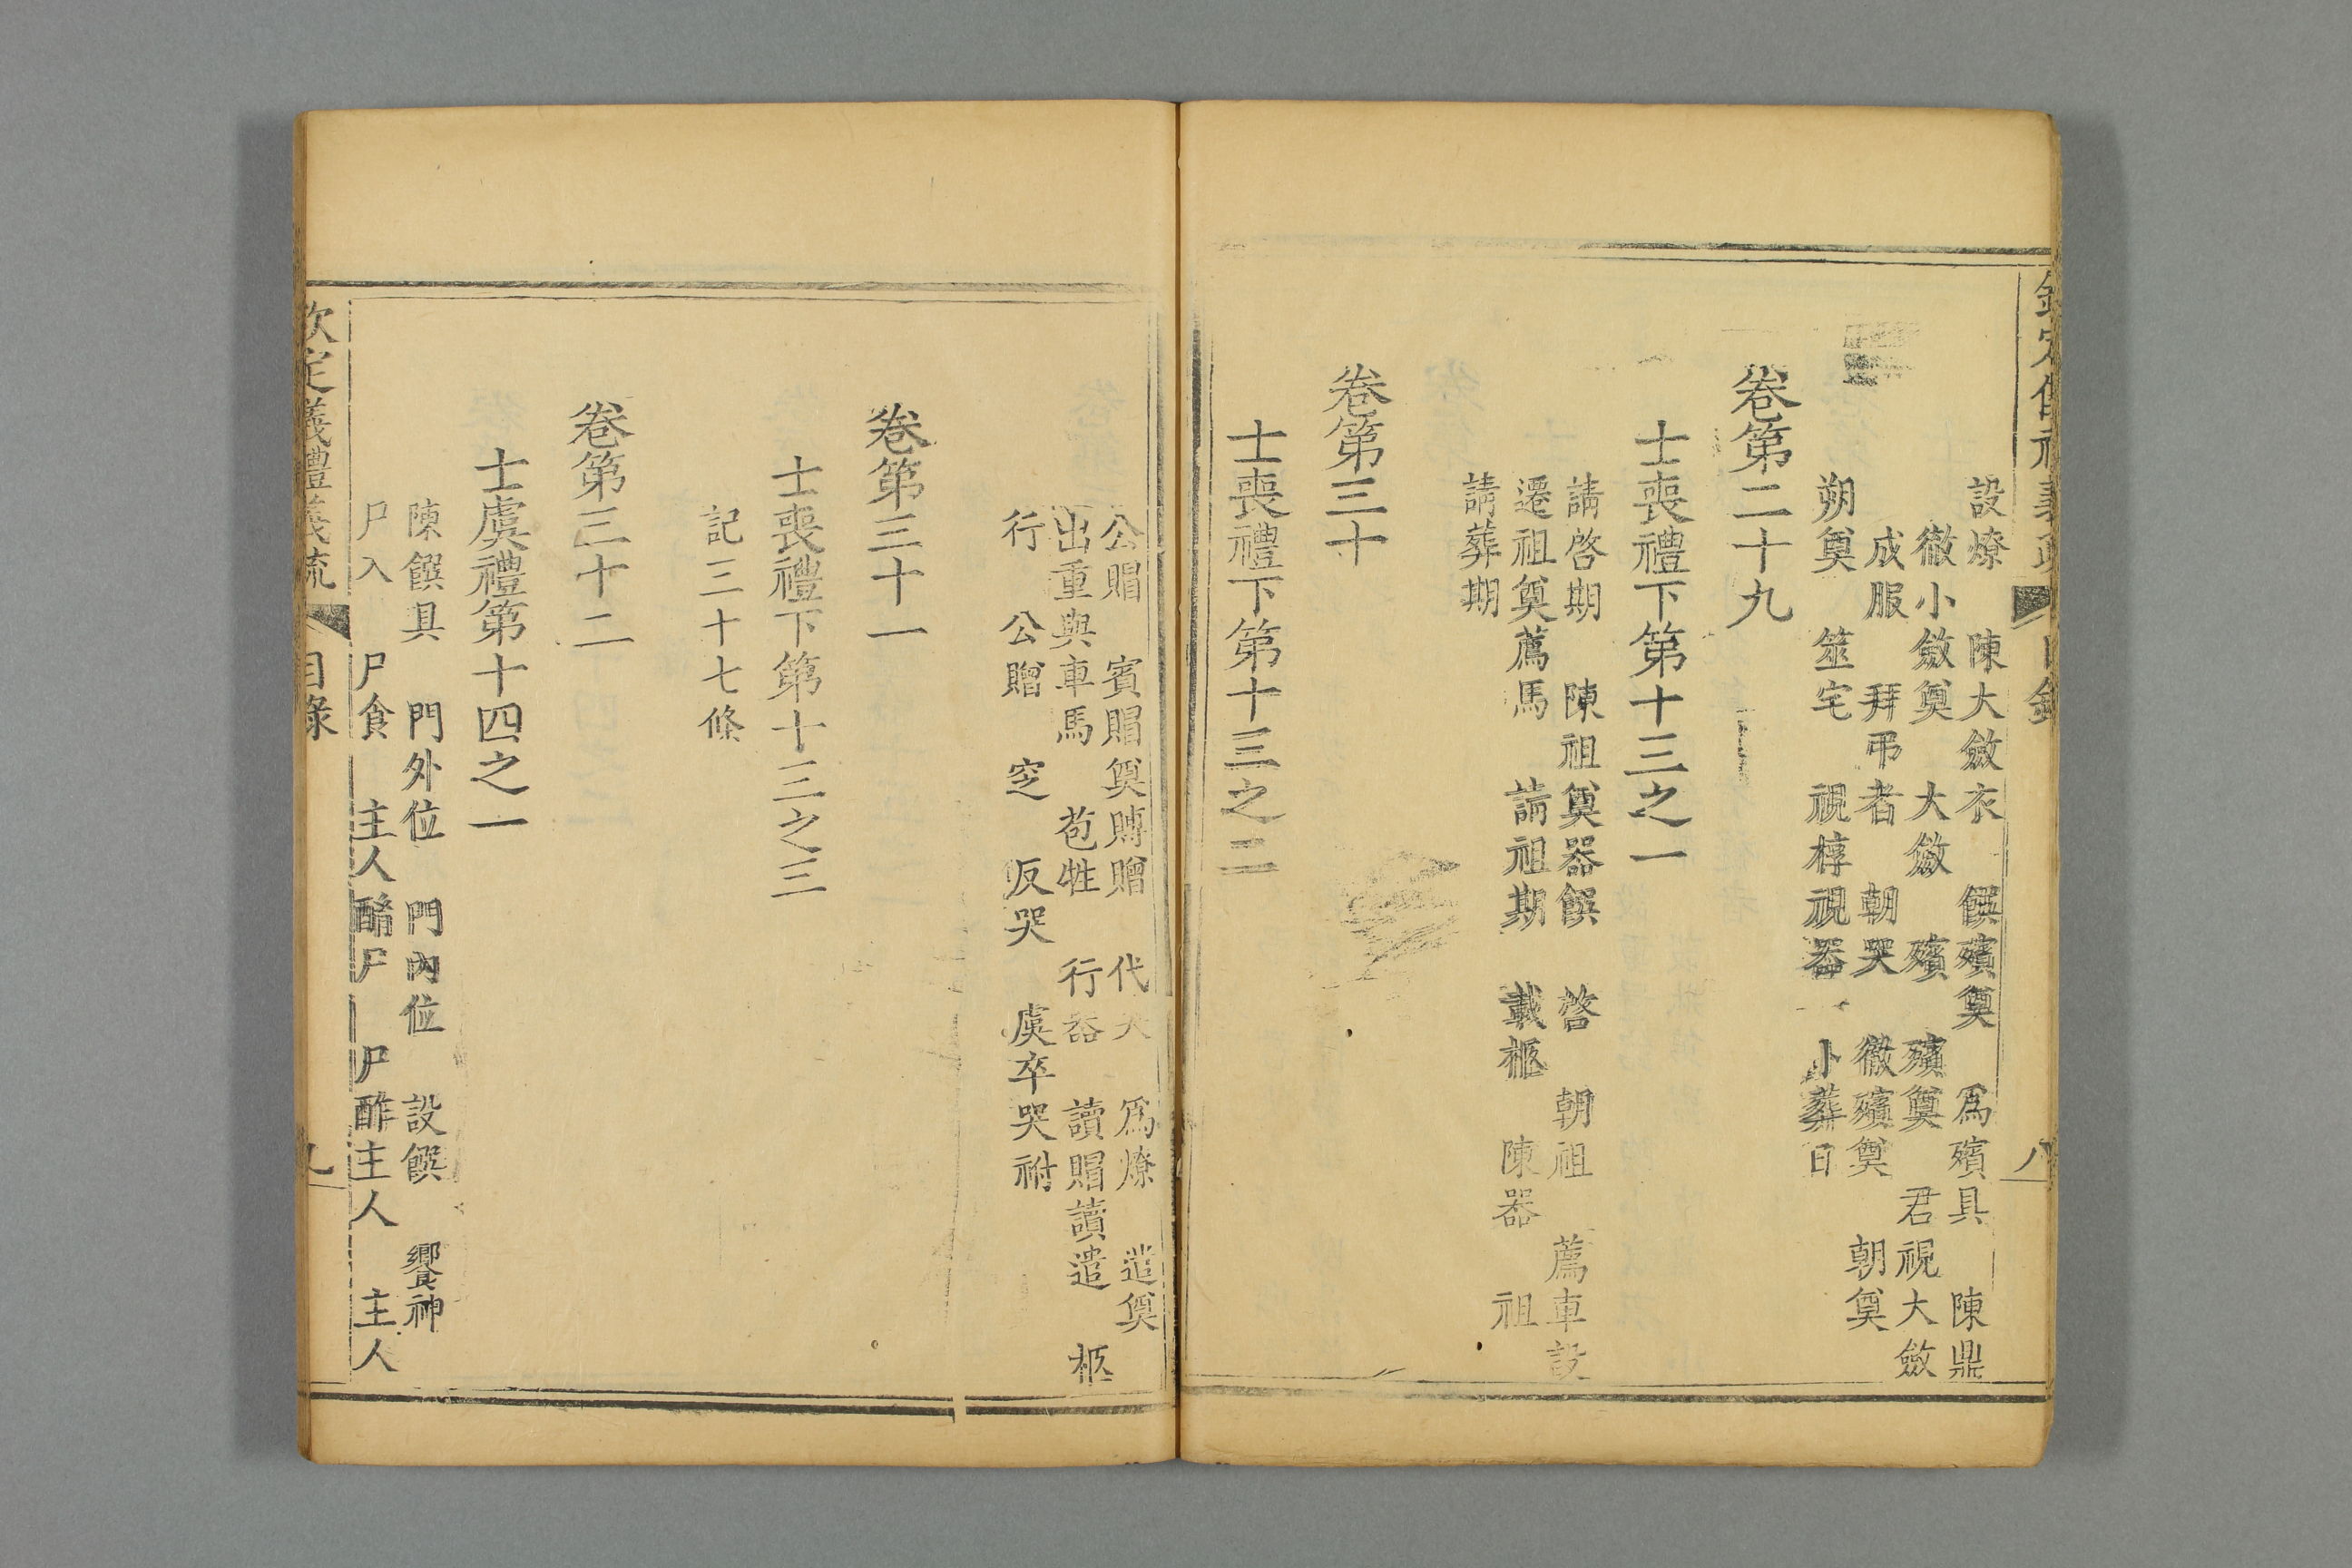 設燎 陳大斂衣 饌殯奠 爲殯具 陳鼎
徹小斂奠 大斂 殯 殯奠 君視大斂
成服 拜弔者 朝哭 徹殯奠 朝奠
朔奠 筮宅 視椁視器 卜葬日
卷第二十九
士喪禮下第十三之一
請啓期 陳祖奠器饌 啓 朝祖 薦車設
遷祖奠薦馬 請祖期 載柩 陳器 祖
請葬期
卷第三十
士喪禮下第十三之二
公賵 賓賵奠賻贈 代哭 爲燎 遣奠
出重與車馬 苞牲 行器 讀賵讀遣 柩
行 公贈 窆 反哭 虞卒哭祔
卷第三十一
士喪禮下第十三之三
記三十七條
卷第三十二
士虞禮第十四之一
陳饌具 門外位 門內位 設饌 饗神
尸入 尸食 主人酳尸 尸酢主人 主人
欽定義禮義疏 目錄 九